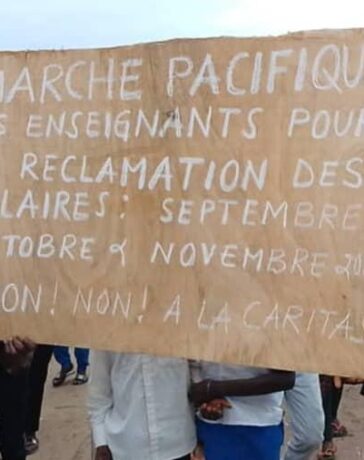 MARCHE PACIFIQU
S ENSEIGNANTS POUR
RECLAMATION DES
LAIRES: SEPTEMBRE
TOBRE & NOVEMBRE 20
ON! NON! A LA CARITAS